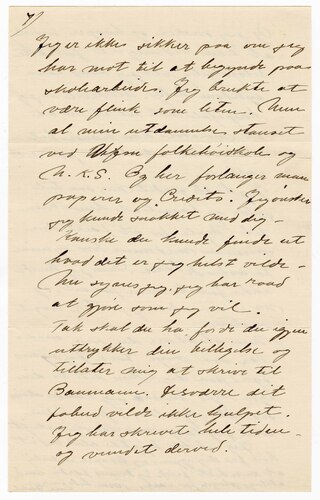 7)
Jeg er ikke sikker paa om jeg
har mot til at begynde paa
skolearbeide. Jeg brukte at
være flink som liten. Men
al min utdannelse stanset
ved folkehøiskole og
N.K.S. Og her forlanger man
papirer og Credits. Jeg ønsker
jeg kunde snakket med dig –
Kanske du kunde finde ut
hvad det er jeg helst vilde –
Nu synes jeg, jeg har raad
at gjøre som jeg vil.
Tak skal du ha fordi du igjen
uttrykker din billigelse og
tillater mig at skrive til
Baumann. Desværre dit
forbud vilde ikke hjulpet.
Jeg har skrevet hele tiden –
og vundet derved.